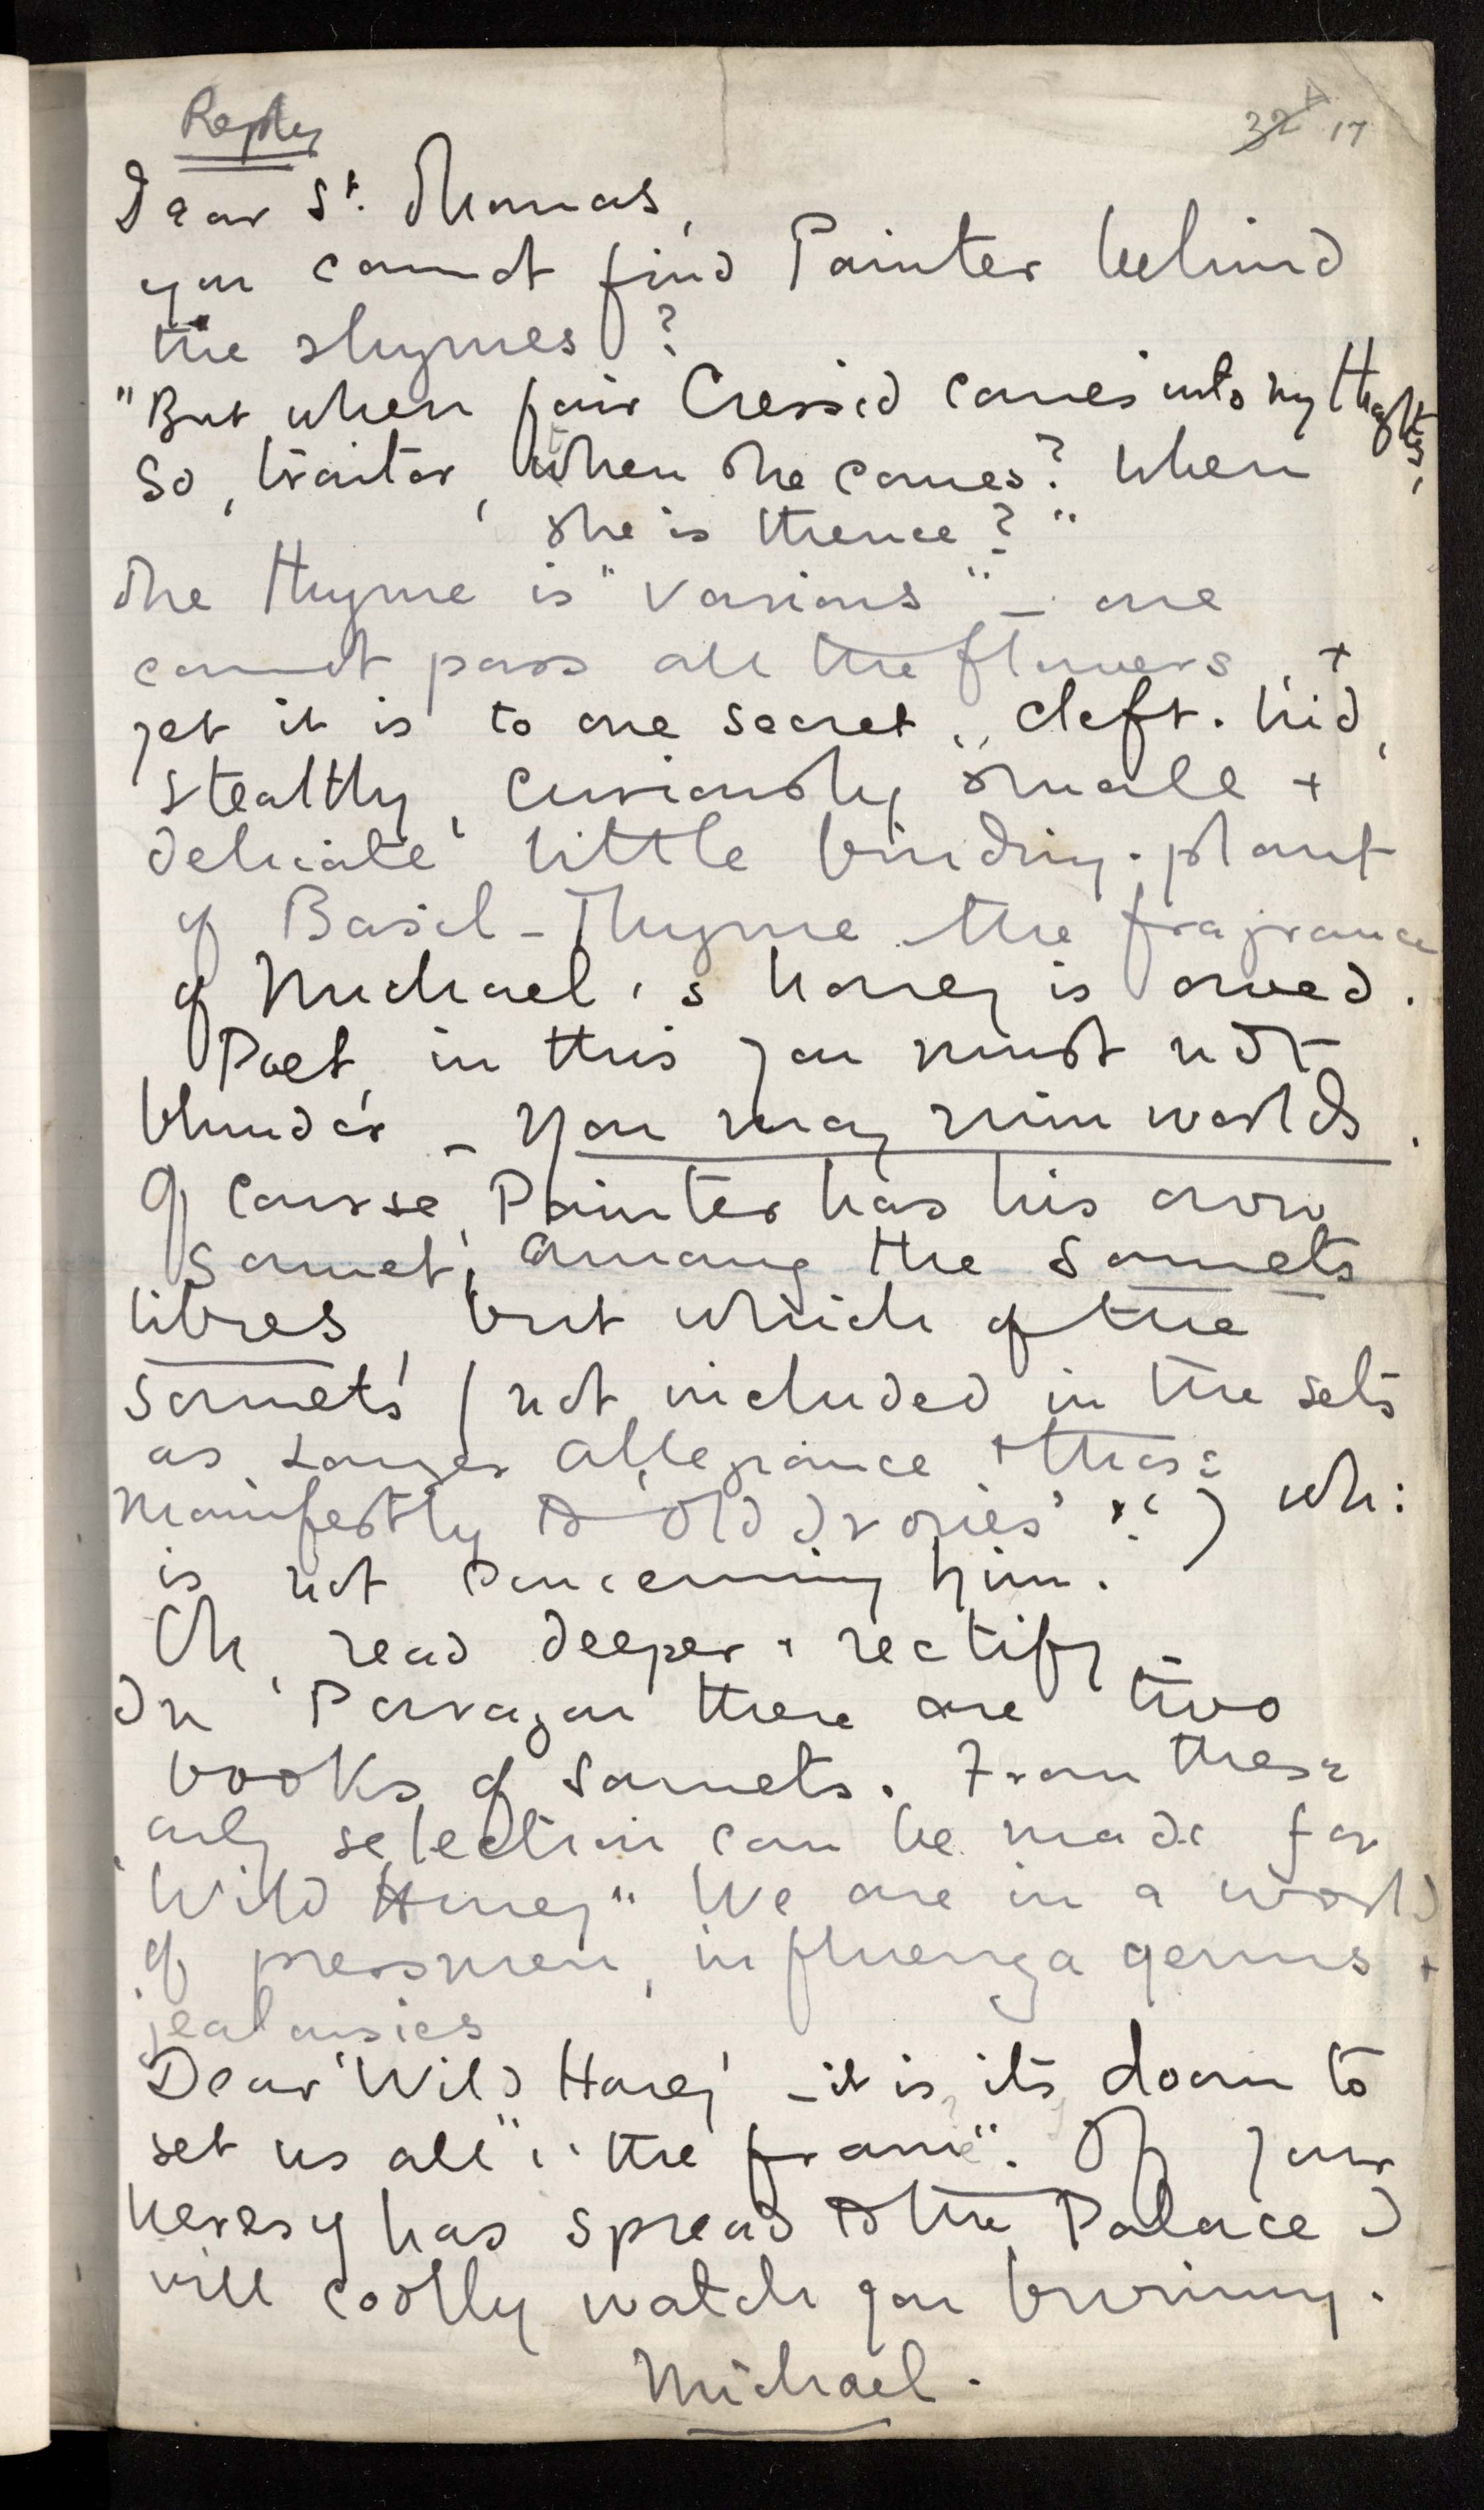 Reply
32A 17
Dear St. Thomas,
you cannot find Painter behind
the rhymes?
"But when fair Cressid comes into my thoughts,
So, traitor, when she comes? When
she is thence?"
The thyme is "various" – one
cannot pass all the flowers, +
yet it is to one secret, cleft-hid,
stealthy, curiously small +
delicate little binding-plant
of Basil-Thyme the fragrance
of Michael's honey is owed.
Poet, in this you must not
blunder – you may ruin worlds.
Of course, Painter has his own
sonnet, among the sonnets
libres, but which of the
sonnets (not included in the sets
as allegiance + those
manifestly to 'Old Ivories') wh:
is not concerning him.
Oh, read deeper + rectify –
In 'Parvagon there are two
books of sonnets. From these
only selection can be made for
"Wild Honey" We are in a world
of pressmen, influenza germs +
jealousies
Dear 'Wild Honey' – it is its doom to
set us all "i' the frame". If your
heresy has spread to the Palace I
will coolly watch you burning.
Michael.